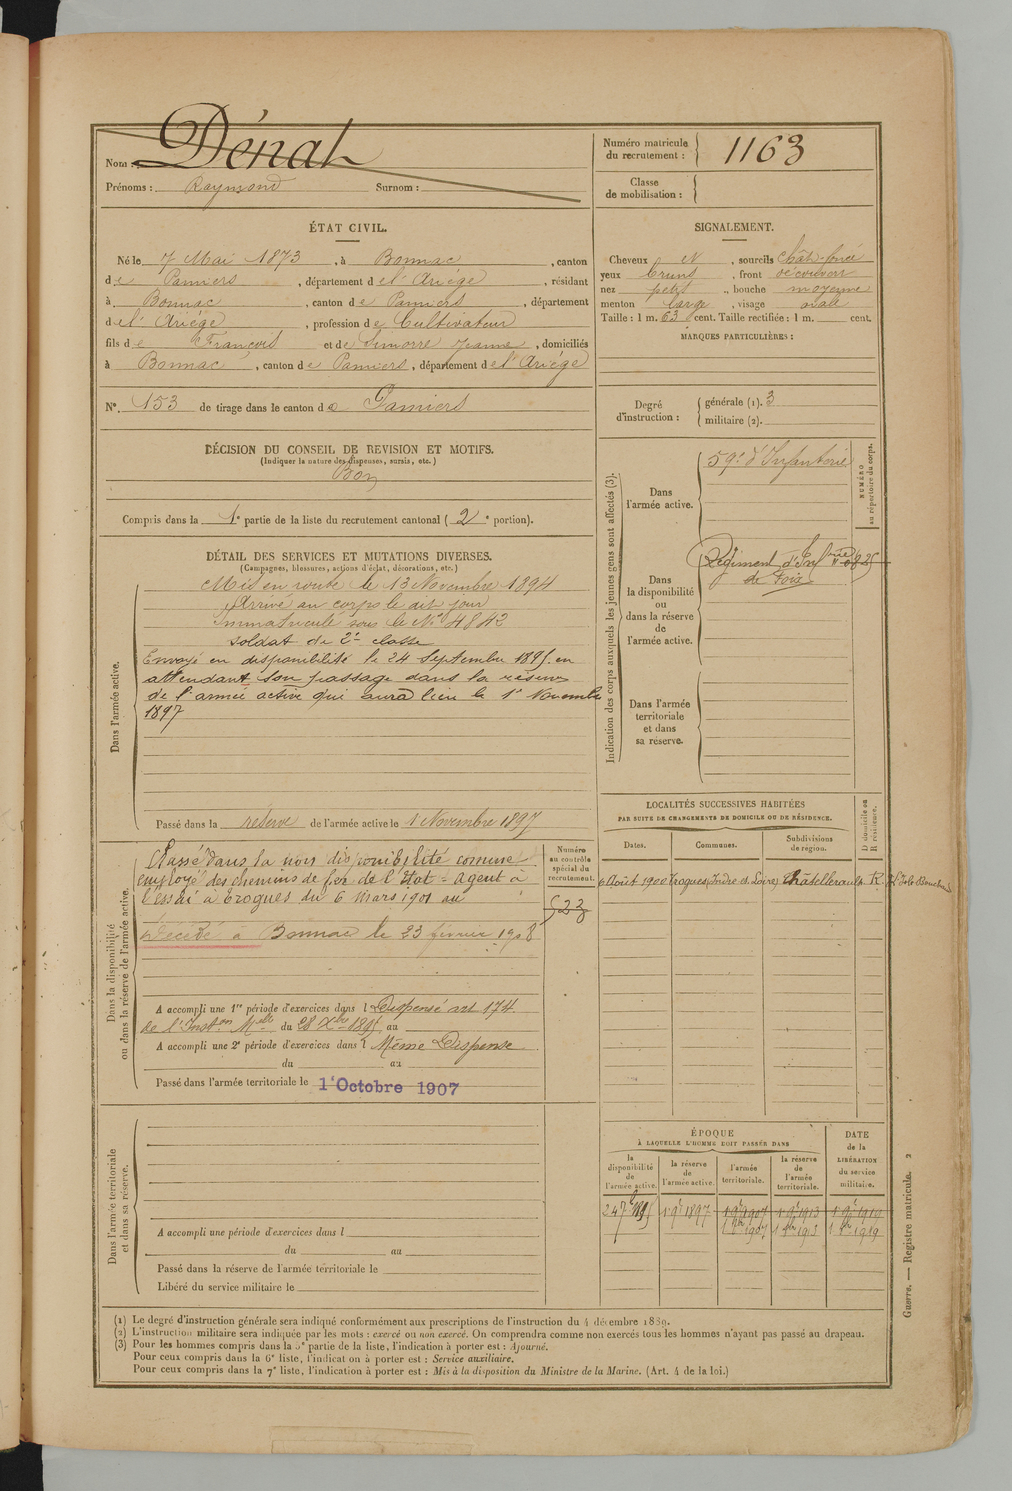 Nom : Dénat
Prénoms : Raymond Surnom :
Numéro matricule du recrutement : 1163
Classe de mobilisation :
ÉTAT CIVIL.
Né le 7 Mai 1873, à Bonnac, canton
de Pamiers, département de l'Ariége, résidant
à Bonnac, canton de Pamiers, département
de l'Ariége, profession de Cultivateur
fils de François et de Simorre Jeanne, domiciliés
à Bonnac, canton de Pamiers, département de l'Ariége
N° 153 de tirage dans le canton de Pamiers
SIGNALEMENT.
Cheveux N, sourcils chât. foncé
yeux bruns, front découvert
nez petit, bouche moyenne
menton large, visage ovale
Taille : 1 m. 63 cent. Taille rectifiée : 1 m. cent.
MARQUES PARTICULIÈRES :
Degré d'instruction : générale (1). 3
militaire (2).
DÉCISION DU CONSEIL DE REVISION ET MOTIFS.
(Indiquer la nature des dispenses, sursis, etc.)
Bon
Compris dans la 1e partie de la liste du recrutement cantonal (2e portion).
DÉTAIL DES SERVICES ET MUTATIONS DIVERSES.
(Campagnes, blessures, actions d'éclat, décorations, etc.)
Dans l'armée active.
Mis en route le 13 Novembre 1894
Arrivé au corps le dit jour
Immatriculé sous le N° 4842
soldat de 2e classe
Envoyé en disponibilité le 24 Septembre 1895 en
attendant son passage dans la réserve
de l'armée active qui aura lieu le 1e Novembre
1897
Passé dans la réserve de l'armée active le 1 Novembre 1897
Indication des corps auxquels les jeunes gens sont affectés (3).
NUMÉRO au répertoire du corps.
Dans l'armée active.
59e d'Infanterie
Dans la disponibilité ou dans la réserve de l'armée active.
Régiment d'Inf
de Foix
Dans l'armée territoriale et dans sa réserve.
Dans la disponibilité ou dans la réserve de l'armée active.
Numéro au contrôle spécial du recrutement.
Classé dans la non disponibilité comme
employé des chemins de fer de l'État - agent à
l'essai à Trogues du 6 Mars 1901 au
523
Décédé à Bonnac le 23 février 1908
A accompli une 1re période d'exercices dans l Dispensé art 174
de l'Inston Mle du 28 Xbre 1895 au
A accompli une 2e période d'exercices dans l Même Dispense
du au
Passé dans l'armée territoriale le 1e Octobre 1907
LOCALITÉS SUCCESSIVES HABITÉES
PAR SUITE DE CHANGEMENTS DE DOMICILE OU DE RÉSIDENCE.
Dates. Communes. Subdivisions de région. D domicile ou R résidence.
6 Août 1900 Trogues (Indre et Loire) Châtellerault R.
Dans l'armée territoriale et dans sa réserve.
A accompli une période d'exercices dans l
du au
Passé dans la réserve de l'armée territoriale le
Libéré du service militaire le
ÉPOQUE
À LAQUELLE L'HOMME DOIT PASSER DANS
DATE de la LIBÉRATION du service militaire.
la disponibilité de l'armée active. la réserve de l'armée active. l'armée territoriale. la réserve de l'armée territoriale.
24 7bre 1895 1 9e 1897 1 9e 1907 1 9e 1913 1 9e 1919
1 8bre 1907 1 8bre 1913 1 8bre 1919
(1) Le degré d'instruction générale sera indiqué conformément aux prescriptions de l'instruction du 4 décembre 1889.
(2) L'instruction militaire sera indiquée par les mots : exercé ou non exercé. On comprendra comme non exercés tous les hommes n'ayant pas passé au drapeau.
(3) Pour les hommes compris dans la 5e partie de la liste, l'indication à porter est : Ajourné.
Pour ceux compris dans la 6e liste, l'indication à porter est : Service auxiliaire.
Pour ceux compris dans la 7e liste, l'indication à porter est : Mis à la disposition du Ministre de la Marine. (Art. 4 de la loi.)
Guerre. — Registre matricule. 2